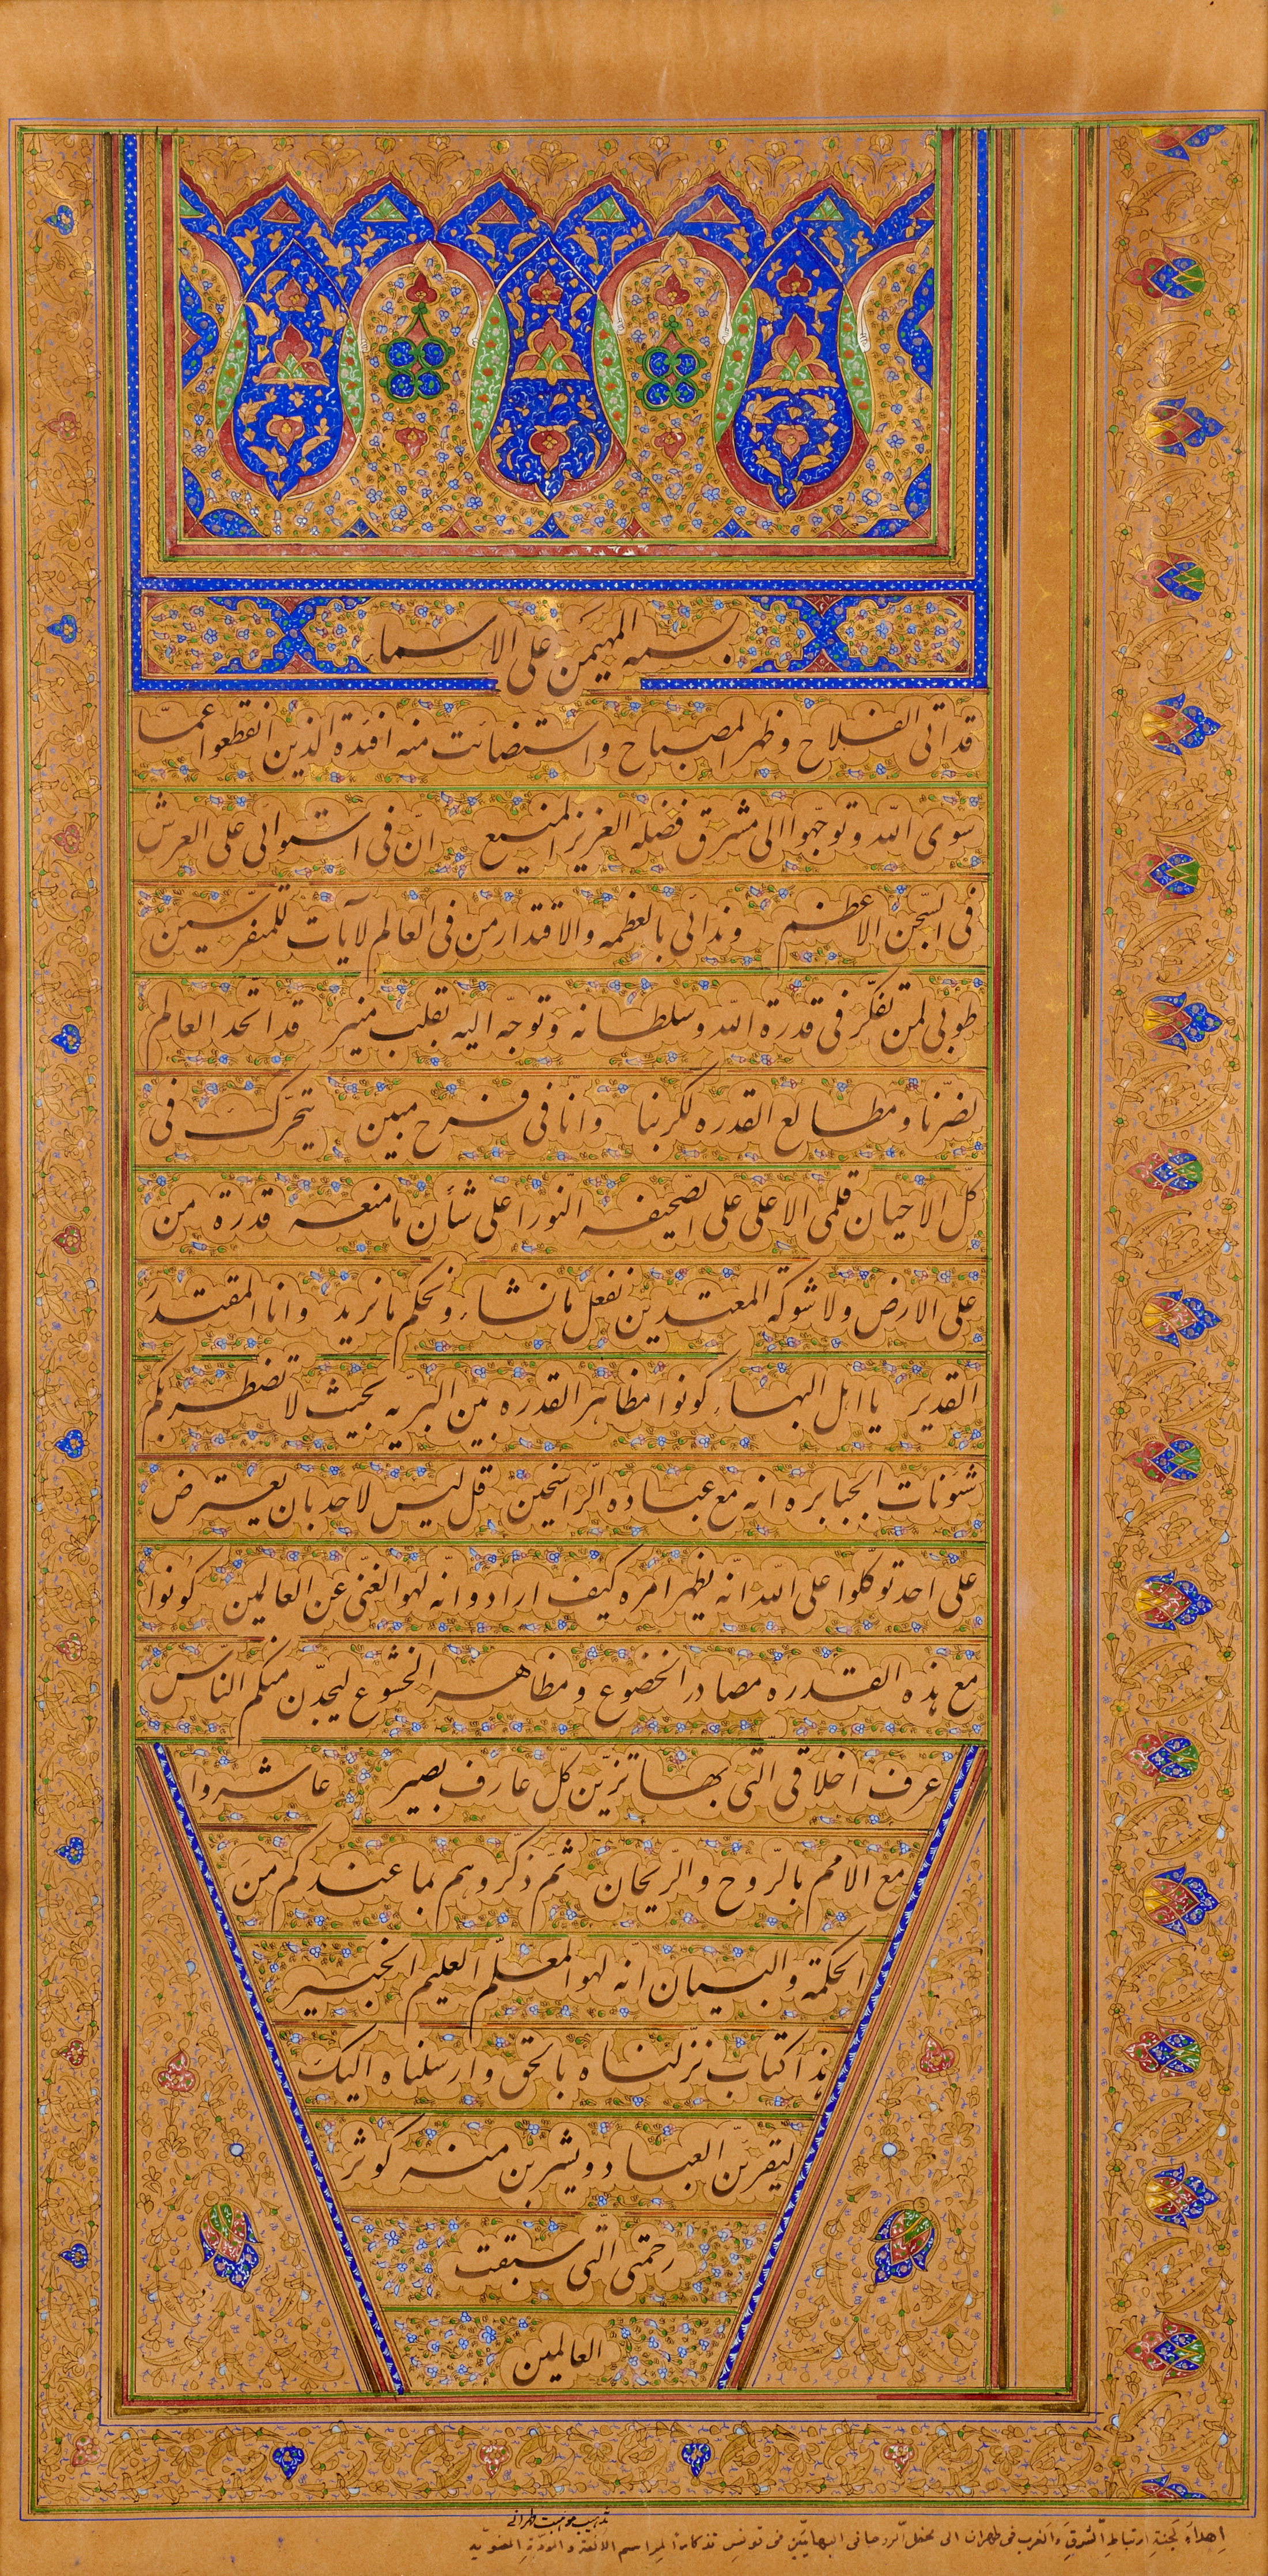 بسمه المهیمن علی الاسماء
قد اتی الفلاح و ظهر المصباح و استضائت منه افئدة الذین انقطعوا عمّا
سوی اللّه و توجّهوا الی مشرق فضله العزیز المنیع انّ فی استوائی علی العرش
فی السّجن الاعظم و ندائی بالعظمه و الاقتدار من فی العالم لآیات للمتفرّسین
طوبی لمن تفکّر فی قدرة اللّه و سلطانه و توجّه الیه بقلب منیر قد اتحد العالم
لضرّنا و مطالع القدره لکربنا و انّا فی فرح مبین یتحرّک فی
کلّ الاحیان قلمی الاعلی علی الصّحیفه النّورا علی شأن ما منعه قدرة من
علی الارض و لا شوکة المعتدین نفعل ما نشاء و نحکم ما نرید و انا المقتدر
القدیر یا اهل البهاء کونوا مظاهر القدره بین البریّه بحیث لا تضطربکم
شئونات الجبابره انه مع عباده الرّاسخین قل لیس لاحد بان یعترض
علی احد توکّلوا علی اللّه انّه یظهر امره کیف اراد و انّه لهو الغنیّ عن العالمین کونوا
مع هذه القدره مصادر الخضوع و مظاهر الخشوع لیجدّن منکم النّاس
عرف اخلاقی الّتی بها تزیّن کلّ عارف بصیر عاشروا
مع الامم بالرّوح و الرّیحان ثمّ ذکّروهم بما عندکم من
الحکمة و البیان انّه لهو المعلّم العلیم الخبیر
هذا کتاب نزّلناه بالحق و ارسلناه الیک
لیقرئنّ العباد و یشربن منه کوثر
رحمتی الّتی سبقت
العالمین
تذهیب موهبت طهرانی
اهداء لجنة ارتباط الشرق و الغرب فی طهران الی محفل الروحانی البهائیین فی تونس تذکارا لمراسم الالفة و المودّة المعنویّه